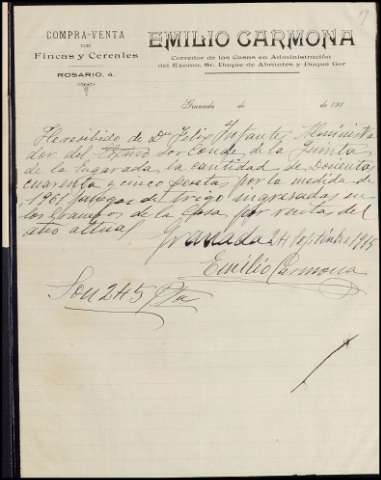 COMPRA-VENTA
DE
Fincas y Cereales
ROSARIO, 4.
EMILIO CARMONA
Corredor de los Casas en Administración
del Excmo. Sr. Duque de Abrantes y Duque Gor
Granada de de 191
He recibido de Dn Felix Infante, Administra
dor del Excmo Sor Conde de la Quinta
de la Enjarada la cantidad de Doscientas
cuarenta y cinco pesetas por la medida de
1961 fanegas de trigo ingresadas en
los Graneros de la Casa por rentas del
año actual
Granada 24 Septiembre 1915
Emilio Carmona
Son 245 Pta